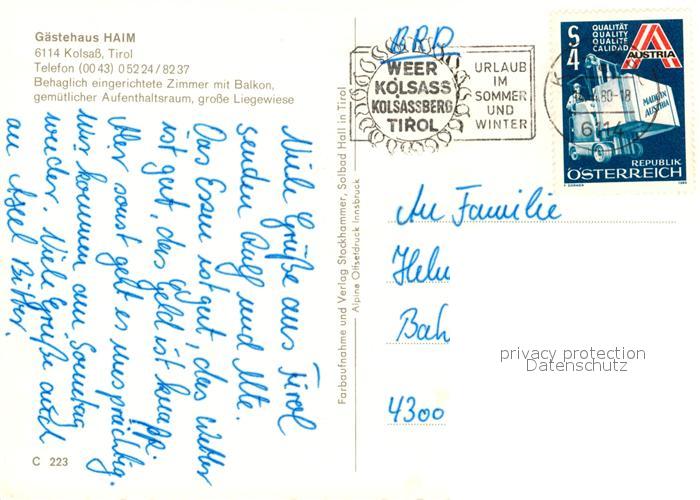 Gästehaus HAIM
6114 Kolsaß, Tirol
Telefon (00 43) 0 52 24 / 82 37
Behaglich eingerichtete Zimmer mit Balkon,
gemütlicher Aufenthaltsraum, große Liegewiese
Viele Grüße aus Tirol
senden Ralf und Ute.
Das Essen ist gut, das Wetter
ist gut, das Geld ist knapp.
Aber sonst geht es uns prächtig.
Wir kommen am Sonntag
wieder. Viele Grüße auch
an Axel Ritter.
C 223
Farbaufnahme und Verlag Stockhammer, Solbad Hall in Tirol
Alpine Offsetdruck Innsbruck
BRD
WEER
KOLSASS
KOLSASSBERG
TIROL
URLAUB
IM
SOMMER
UND
WINTER
80-18
6114
S4
QUALITÄT
QUALITY
QUALITE
CALIDAD
AUSTRIA
MADE IN
AUSTRIA
REPUBLIK
ÖSTERREICH
An Familie
4300
privacy protection
Datenschutz